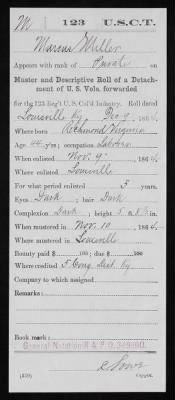 M | 123 | U.S.C.T.
Marcus Miller
Appears with rank of Private on
Muster and Descriptive Roll of a Detach-
ment of U. S. Vols. forwarded
for the 123 Reg't U.S. Col'd Infantry. Roll dated
Louisville Ky Dec 9, 1864.
Where born Richmond Virginia
Age 44 y'rs; occupation Laborer
When enlisted Nov. 9, 1864.
Where enlisted Louisville
For what period enlisted 3 years.
Eyes Dark; hair Dark
Complexion Dark; height 5 ft. 8½ in.
When mustered in Nov. 10, 1864.
Where mustered in Louisville
Bounty paid $ 100; due $ 100
Where credited 5 Cong Dist Ky.
Company to which assigned
Remarks:
Book mark:
General Notation R & P O.
(339)
Copyist.